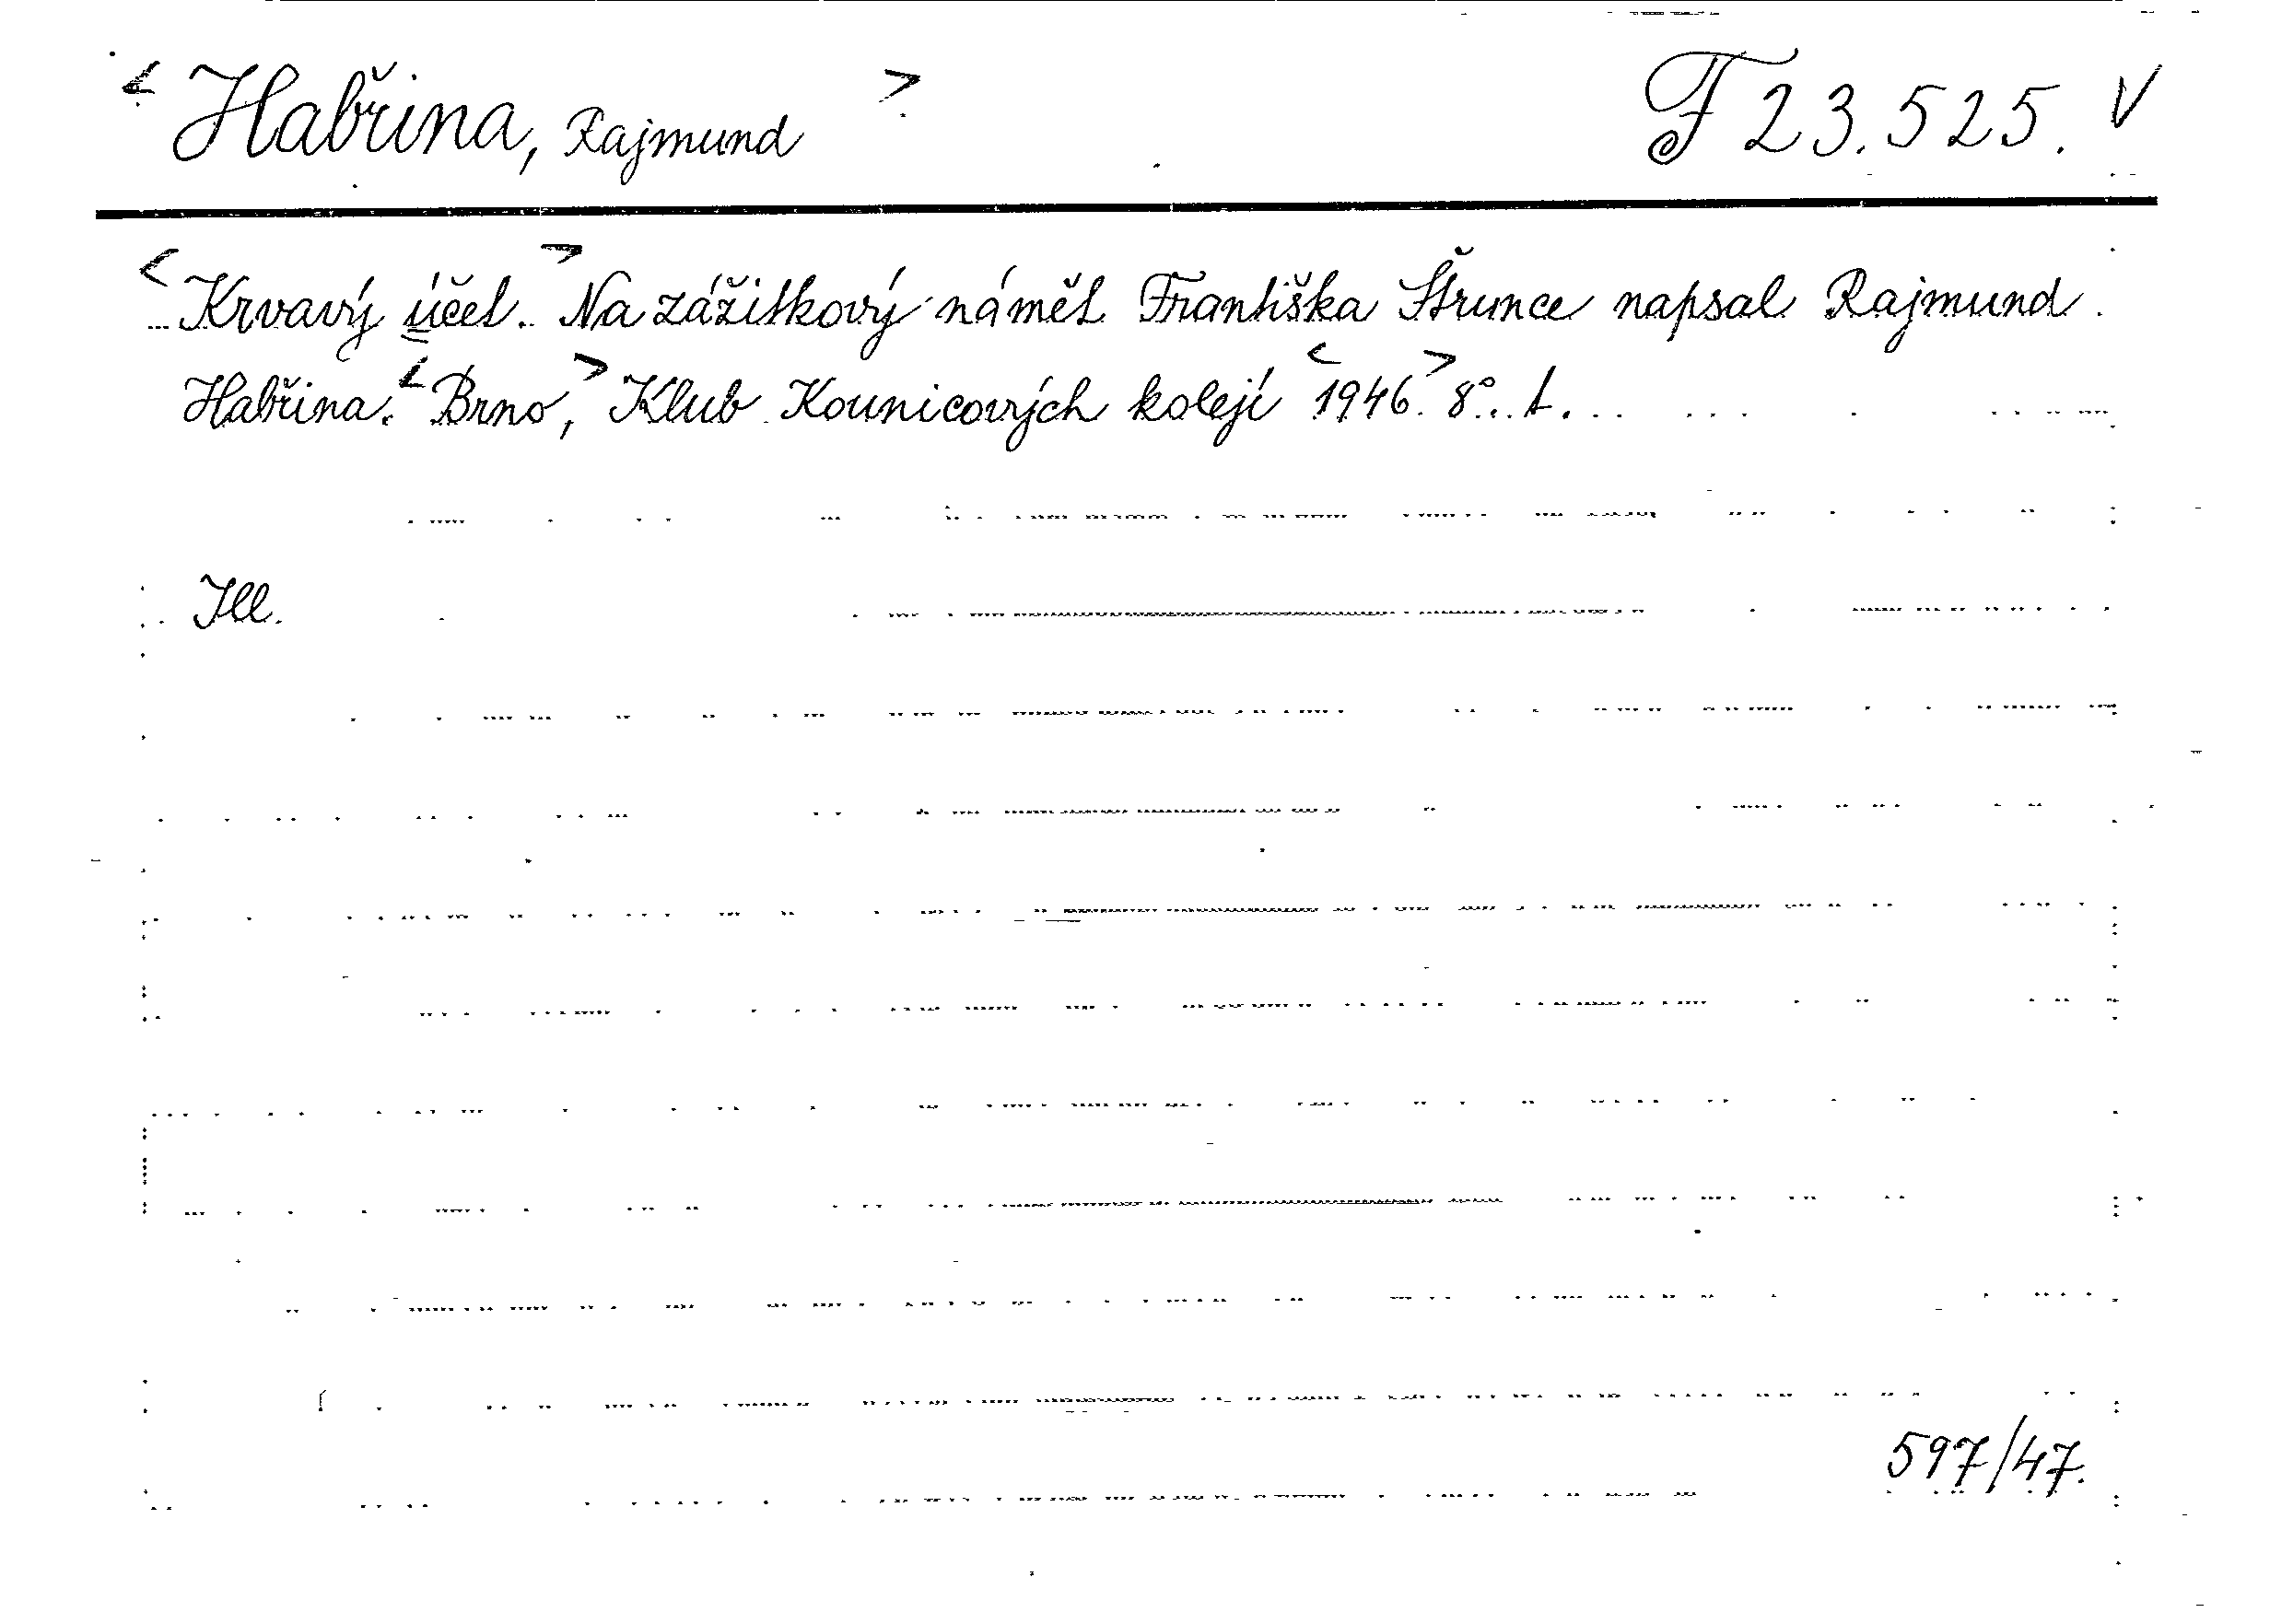 < Habřina, Rajmund > F 23.525. V
< Krvavý účet. > Na zážitkový námět Františka Štrunce napsal Rajmund
Habřina. < Brno, > Klub Kounicových kolejí < 1946. > 8°. t.
Ill.
597/47.